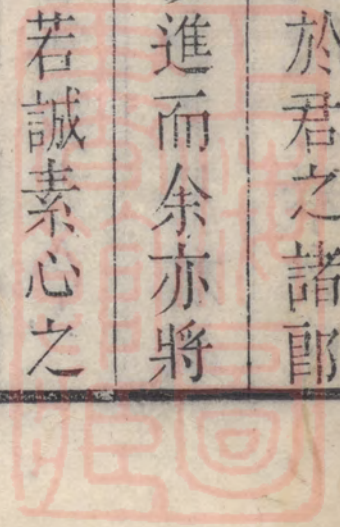 於君之諸郎
進而余亦將
若誠素心之